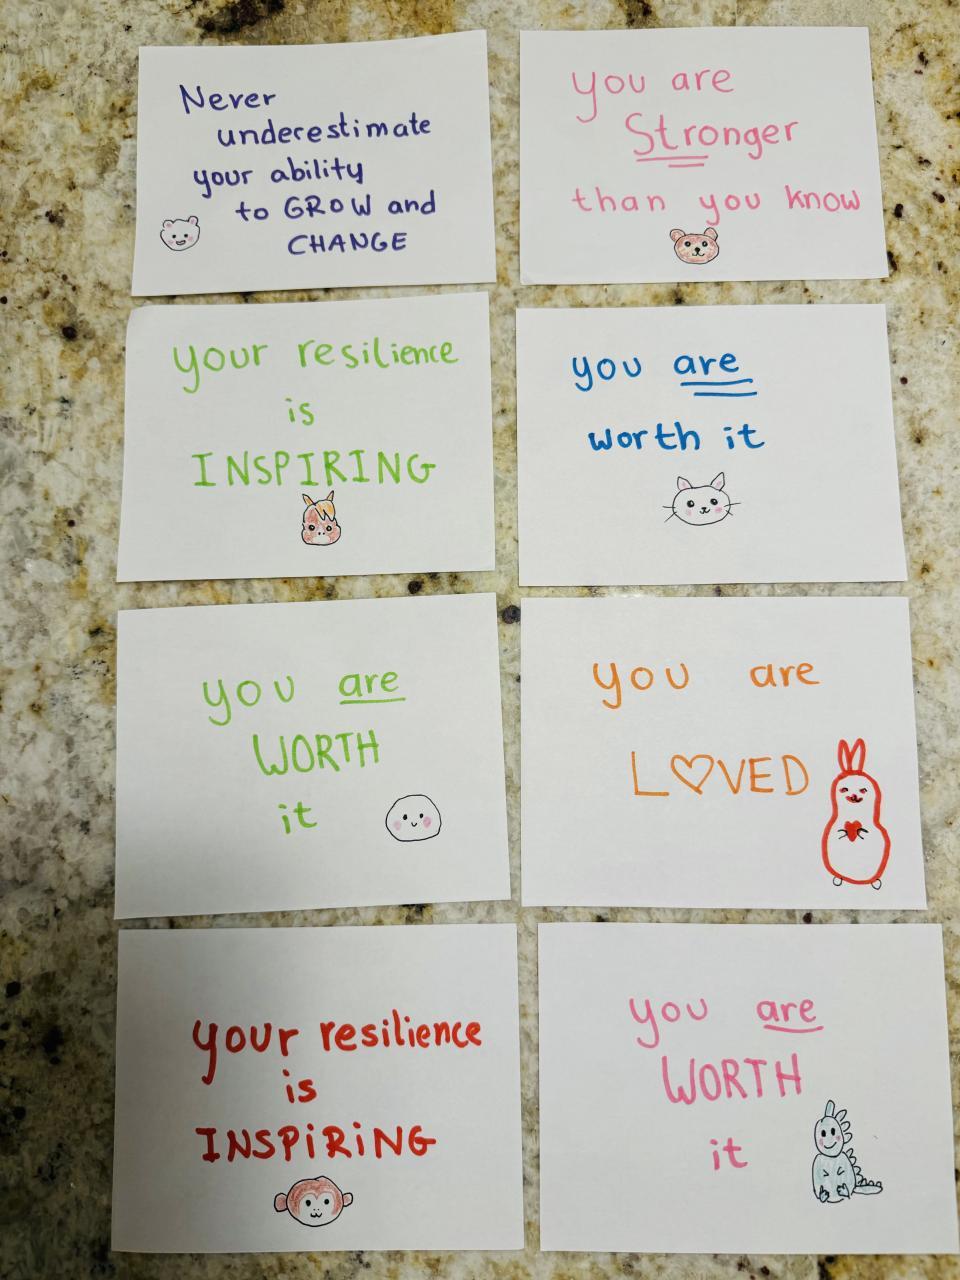 Never
underestimate
your ability
to GROW and
CHANGE
you are
Stronger
than you know
your resilience
is
INSPIRING
you are
worth it
you are
WORTH
it
you are
L♡VED
your resilience
is
INSPiRiNG
you are
WORTH
it